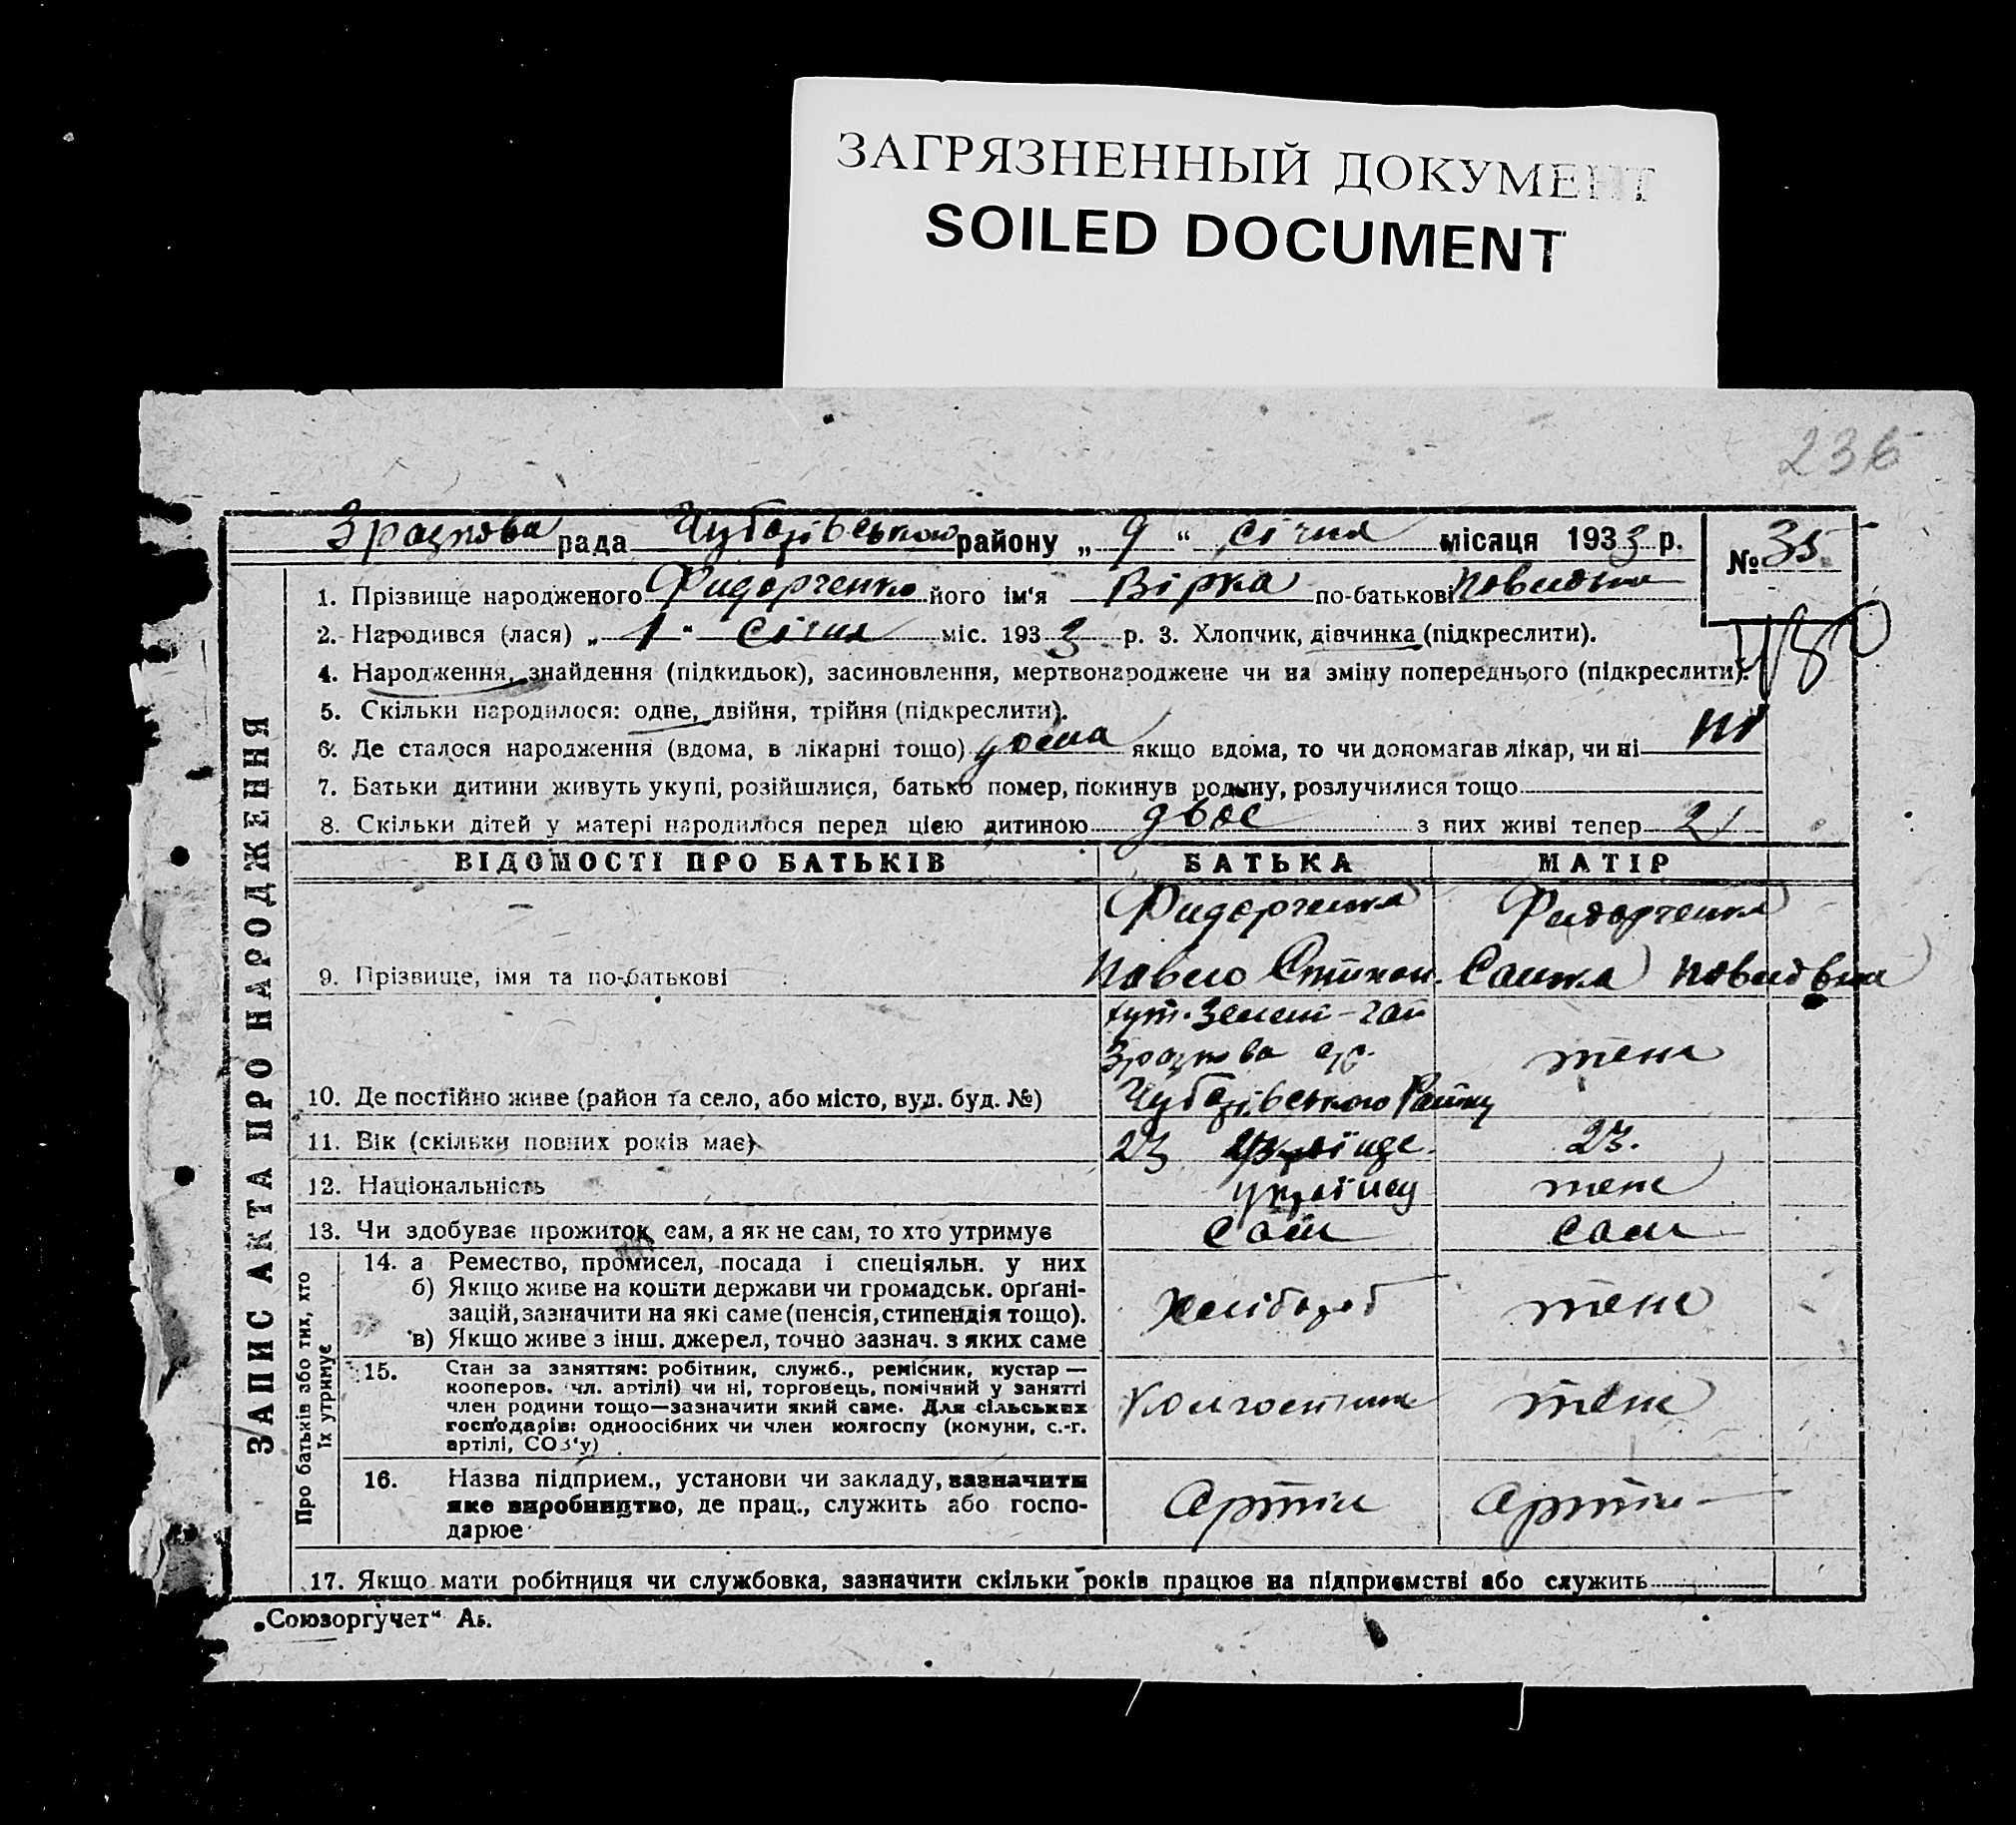 ЗАГРЯЗНЕННЫЙ ДОКУМЕНТ
SOILED DOCUMENT
236
Зразкова рада Чубарівського району „ 9 “ січня місяця 1933 р.
№ 35
1. Прізвище народженого Фидорченко його ім'я Вірка по-батькові
2. Народився (лася) „ 1 “ Січня міс. 193 3 р. 3. Хлопчик, дівчинка (підкреслити).
180
4. Народження, знайдення (підкидьок), засиновлення, мертвонароджене чи на зміну попереднього (підкреслити).
5. Скільки народилося: одне, двійня, трійня (підкреслити).
6. Де сталося народження (вдома, в лікарні тощо) дома якщо вдома, то чи допомагав лікар, чи ні ні
7. Батьки дитини живуть укупі, розійшлися, батько помер, покинув родину, розлучилися тощо
8. Скільки дітей у матері народилося перед цією дитиною двоє з них живі тепер 2
ЗАПИС АКТА ПРО НАРОДЖЕННЯ
ВІДОМОСТІ ПРО БАТЬКІВ БАТЬКА МАТІР
Фидорченка Фидорченка
9. Прізвище, імя та по-батькові Павло Степан.
хут. Зелений-гай
Зразкова с/р. тене
10. Де постійно живе (район та село, або місто, вул. буд. №) Чубарівського Району
11. Вік (скільки повних років має) 23 23.
12. Національність українец тене
13. Чи здобуває прожиток сам, а як не сам, то хто утримує сам сам
Про батьків або тих, хто
їх утримує
14. а Ремество, промисел, посада і спеціяльн. у них
б) Якщо живе на кошти держави чи громадськ. орґані-
зацій, зазначити на які саме (пенсія, стипендія тощо).
в) Якщо живе з інш. джерел, точно зазнач. з яких саме
хлібороб тене
15. Стан за заняттям: робітник, служб., ремісник, кустар —
кооперов. чл. артілі) чи ні, торговець, помічний у занятті
член родини тощо—зазначити який саме. Для сільських
господарів: одноосібних чи член колгоспу (комуни, с.-г.
артілі, СОЗ'у)
колгоспник тене
16. Назва підприєм., установи чи закладу, зазначити
яке виробництво, де прац., служить або госпо-
дарює
Артіл Артіл
17. Якщо мати робітниця чи службовка, зазначити скільки років працює на підприємстві або служить
„Союзоргучет“